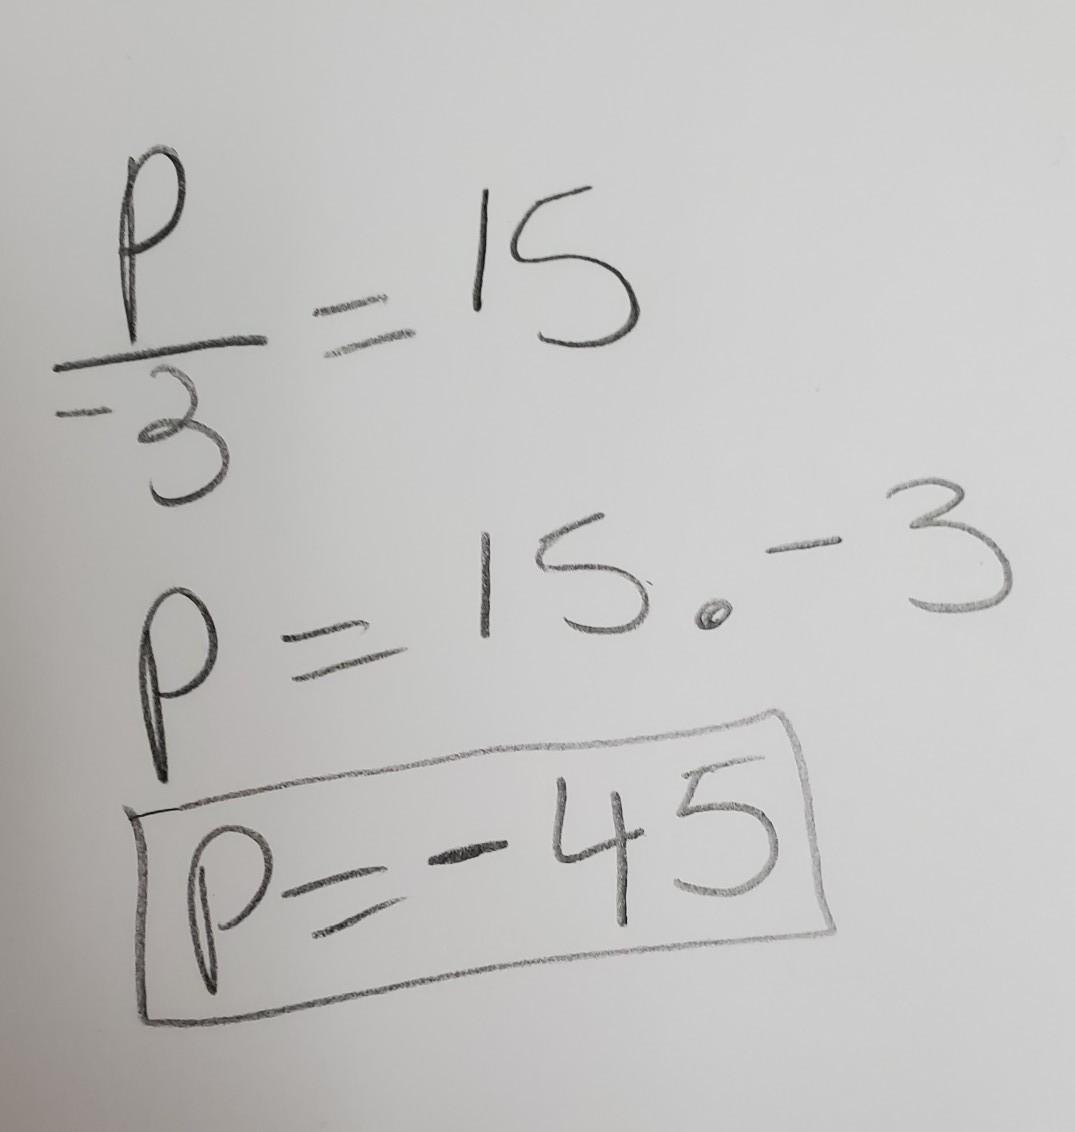 P/-3 = 15
P = 15 . - 3
P = - 45